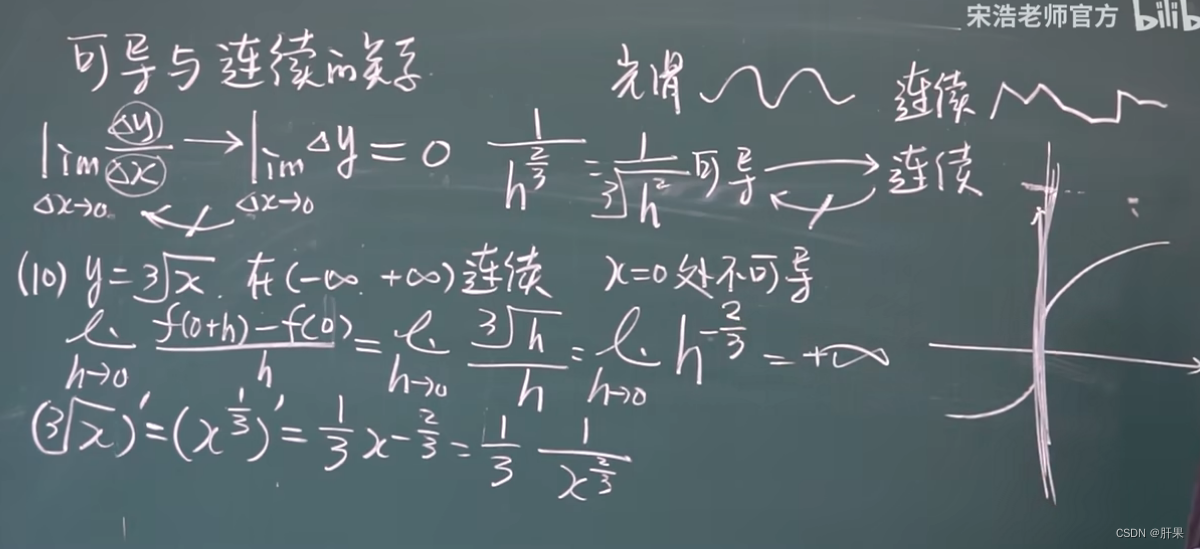 宋浩老师官方 bilib
可导与连续的关系
光滑 连续
lim Δx→0 Δy/Δx → lim Δx→0 Δy = 0
1/h^(2/3) = 1/∛h² 可导 连续
(10) y = ∛x 在(-∞ +∞)连续 x=0处不可导
l. h→0 (f(0+h)-f(0))/h = l. h→0 ∛h/h = l. h→0 h^(-2/3) = +∞
(∛x)' = (x^(1/3))' = 1/3 x^(-2/3) = 1/3 1/x^(2/3)
CSDN @肝果